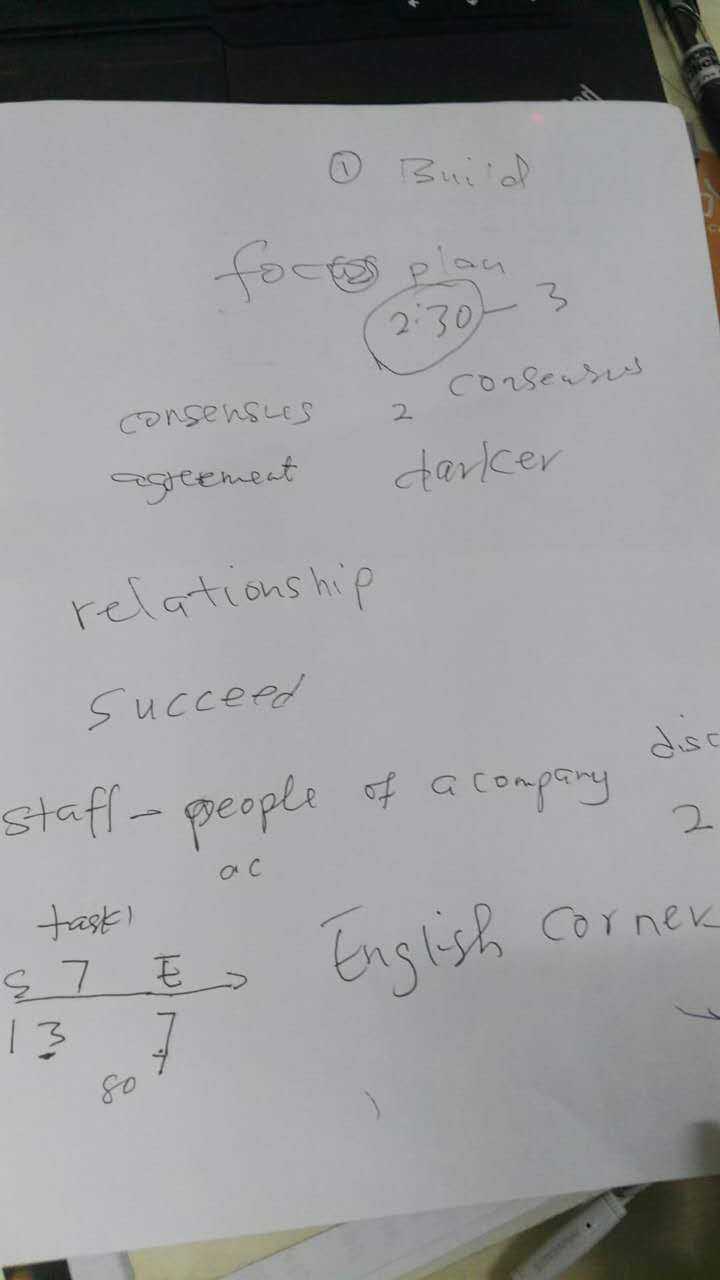 ① Build
focus plan
2:30 - 3
consensus 2 consensus
agreement darker
relationship
succeed
disc
staff - people of a company
2
ac
task1
English corner
S 7 E
1 3 7
80